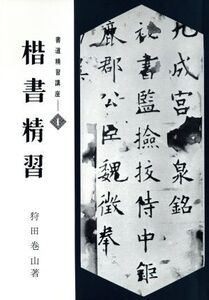 書道精習講座 4
楷書精習
狩田巻山著
九成宮醴泉銘
秘書監撿挍侍中鉅
鹿郡公臣魏徵奉